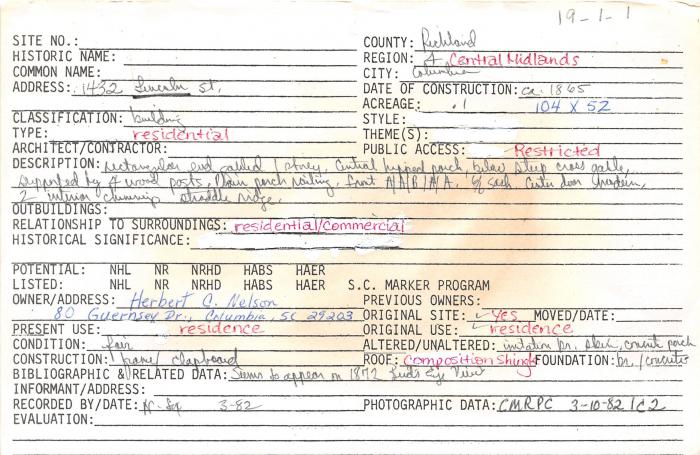 19-1-1
SITE NO.: COUNTY: Richland
HISTORIC NAME: REGION: 4 Central Midlands
COMMON NAME: CITY: Columbia
ADDRESS: 1432 Lincoln St. DATE OF CONSTRUCTION: ca. 1865
ACREAGE: .1 104 X 52
CLASSIFICATION: building STYLE:
TYPE: residential THEME(S):
ARCHITECT/CONTRACTOR: PUBLIC ACCESS: Restricted
DESCRIPTION: rectangular end gabled 1 storey, Central hipped porch, below steep cross gable,
supported by 4 wood posts, plain porch railing, front A/A/B/A/A. 6/6 sash Center door modern,
2 interior chimneys straddle ridge,
OUTBUILDINGS:
RELATIONSHIP TO SURROUNDINGS: residential/commercial
HISTORICAL SIGNIFICANCE:
POTENTIAL: NHL NR NRHD HABS HAER
LISTED: NHL NR NRHD HABS HAER S.C. MARKER PROGRAM
OWNER/ADDRESS: Herbert C. Nelson PREVIOUS OWNERS:
80 Guernsey Dr., Columbia, SC 29203 ORIGINAL SITE: yes MOVED/DATE:
PRESENT USE: residence ORIGINAL USE: residence
CONDITION: fair ALTERED/UNALTERED: imitation br. skin, concrete porch
CONSTRUCTION: frame/clapboard ROOF: Composition Shingl FOUNDATION: br./concrete
BIBLIOGRAPHIC & RELATED DATA: Seems to appear on 1872 Bird's Eye View
INFORMANT/ADDRESS:
RECORDED BY/DATE: 3-82 PHOTOGRAPHIC DATA: CMRPC 3-10-82 1C2
EVALUATION: